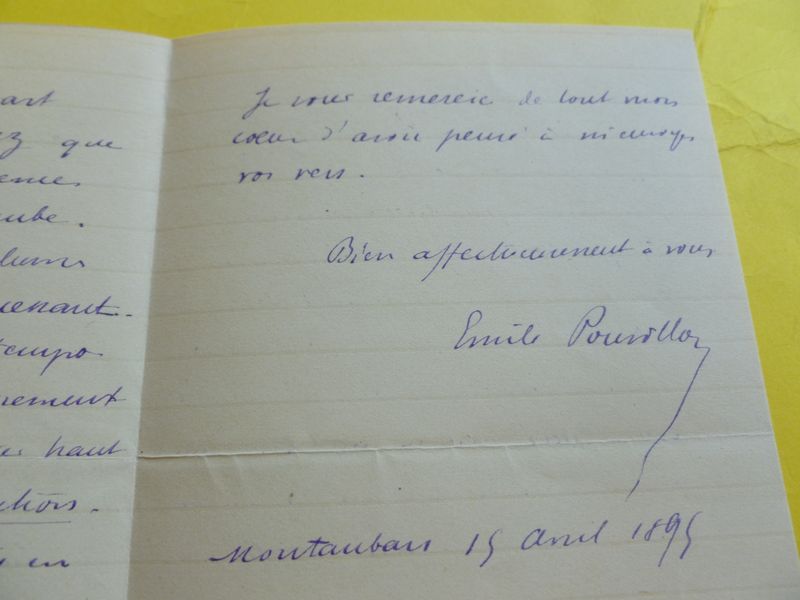 art
ez que
aube.
tempo
haut
en
Je vous remercie de tout mon
coeur d'avoir pensé à m'envoyer
vos vers.
Bien affectueusement à vous
Emile Pouvillon
Montauban 15 Avril 1895